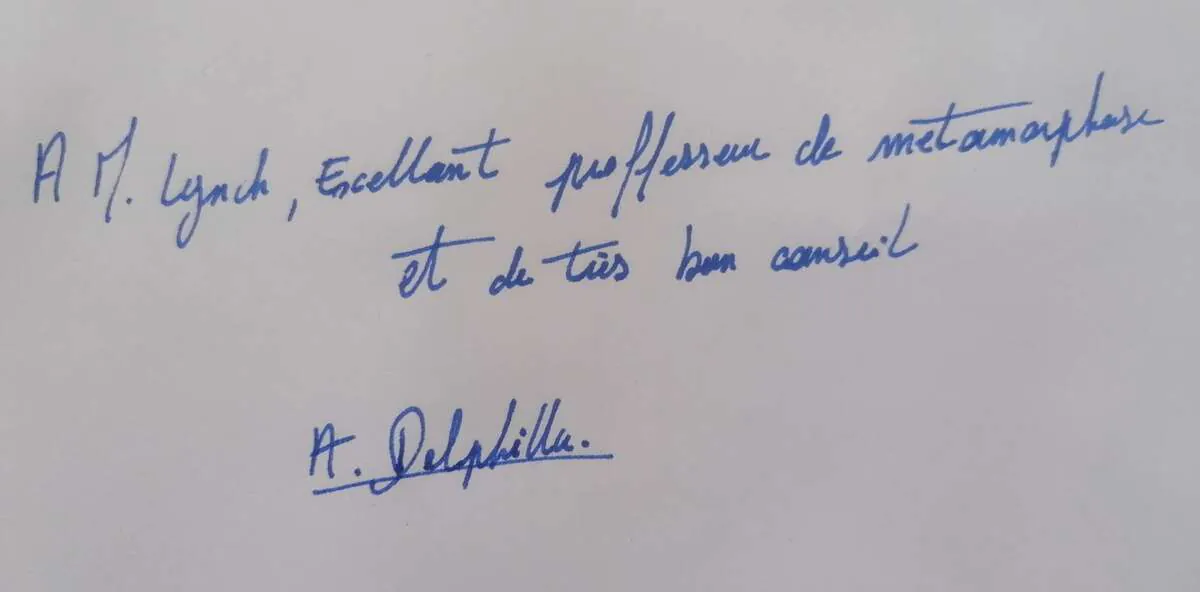 A M. Lynch, Excellant proffesseur de métamorphose
et de très bon conseil
A. Delphilla.